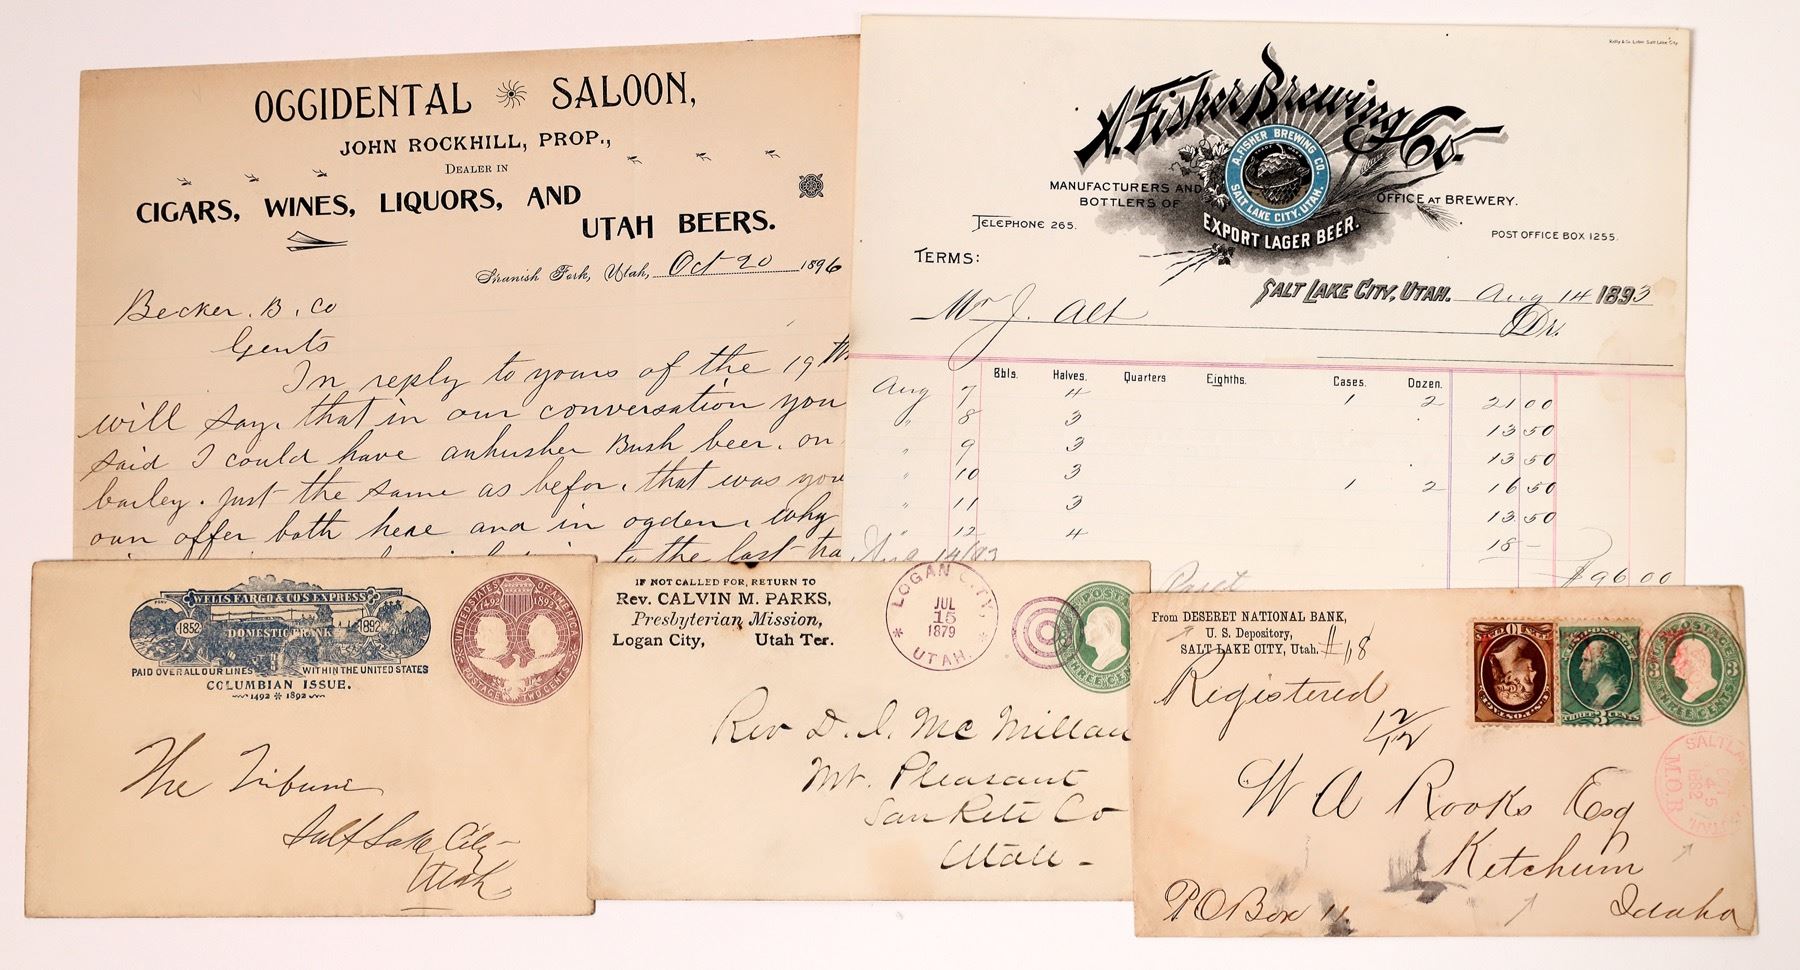 OCCIDENTAL SALOON,
JOHN ROCKHILL, PROP.,
DEALER IN
CIGARS, WINES, LIQUORS, AND
UTAH BEERS.
Spanish Fork, Utah, Oct 20 1896
Becker. B. Co
Gents
In reply to yours of the 19th
will say. that in our conversation you
said I could have anhusher Bush beer. on
barley. just the same as befor. that was your
own offer both here and in ogden. Why
to the last
Kelly & Co. Lither. Salt Lake City
A. Fisher Brewing Co.
A. FISHER BREWING CO.
TRADE MARK
SALT LAKE CITY, UTAH.
MANUFACTURERS AND
BOTTLERS OF
EXPORT LAGER BEER.
OFFICE AT BREWERY.
TELEPHONE 265.
POST OFFICE BOX 1255.
TERMS:
SALT LAKE CITY, UTAH. Aug 14 1893
Mr J. Alt Dr.
Bbls. Halves. Quarters Eighths. Cases. Dozen.
Aug 7 4 1 2 21 00
" 8 3 13 50
" 9 3 13 50
" 10 3 1 2 16 50
" 11 3 13 50
" 12 4 18 -
Aug 14/93 $96.00
WELLS FARGO & CO'S EXPRESS
1852 DOMESTIC FRANK 1892
PAID OVER ALL OUR LINES WITHIN THE UNITED STATES
COLUMBIAN ISSUE.
1492 * 1892
UNITED STATES OF AMERICA
1492 1892
POSTAGE TWO CENTS
The Tribune
Salt Lake City-
Utah
IF NOT CALLED FOR, RETURN TO
Rev. CALVIN M. PARKS,
Presbyterian Mission,
Logan City, Utah Ter.
LOGAN CITY,
JUL
15
1879
* UTAH. *
U.S. POSTAGE
THREE CENTS
Rev D. J. Mc Millan
Mt. Pleasant
San Pete Co
Utah -
From DESERET NATIONAL BANK,
U. S. Depository,
SALT LAKE CITY, Utah. #118
Registered
12/12
U.S. POSTAGE
THREE 3 CENTS
U.S. POSTAGE
3 3
THREE CENTS
SALT LAKE
OCT
1882
M.O.B.
UTAH.
W A Rooks Esq
Ketchum
PO Box 11 Idaho